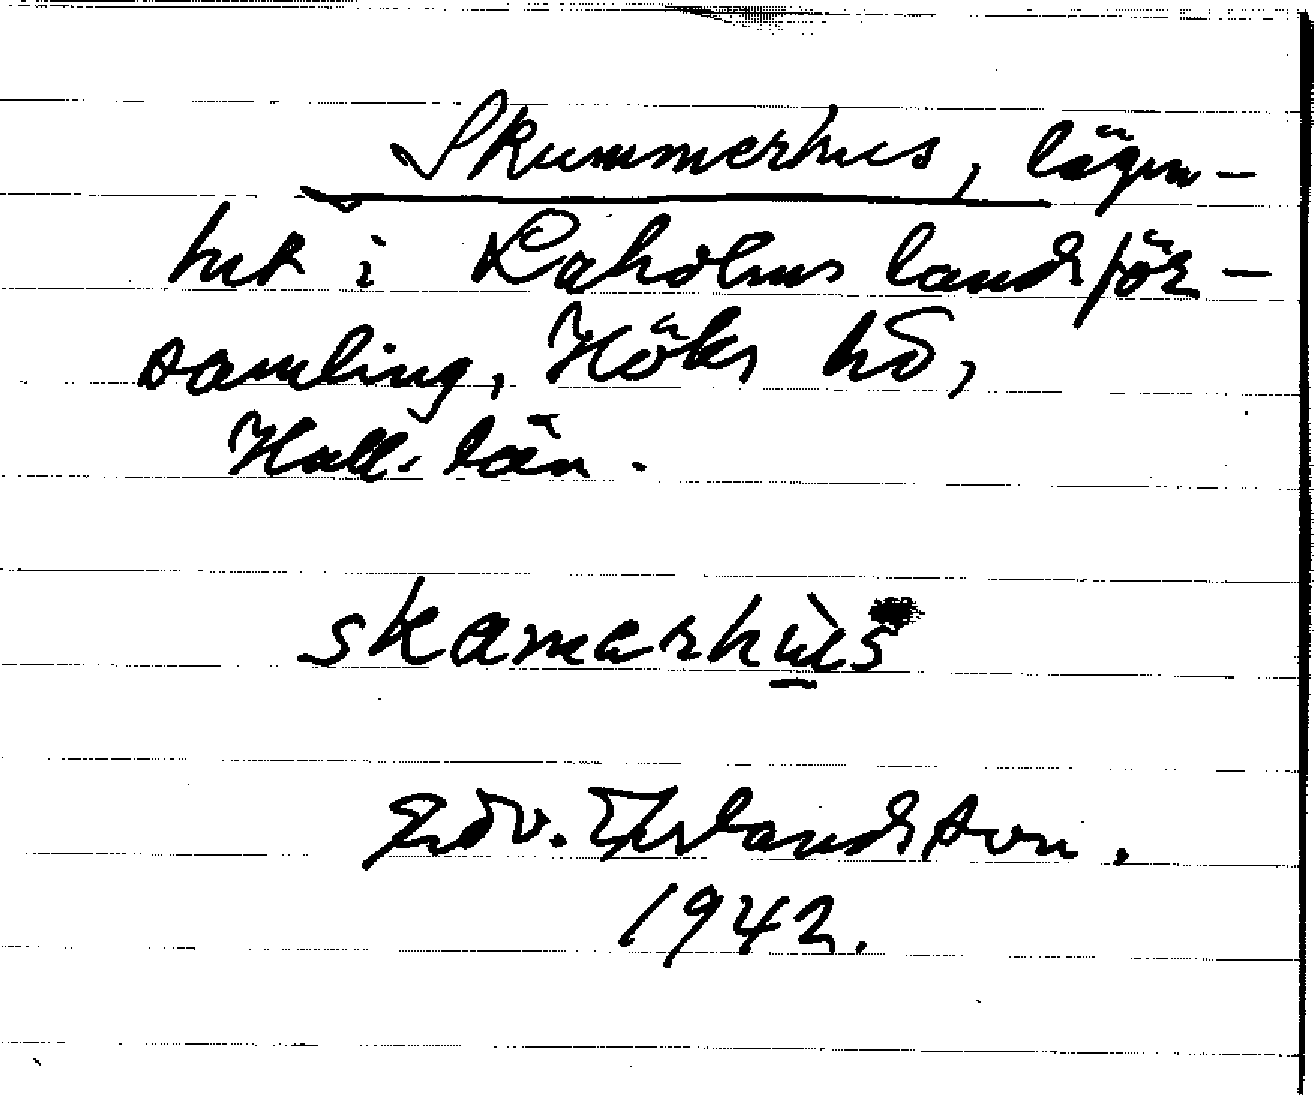 Skummerhus, lägen-
het i Laholms landsför-
samling, Höks hd,
Hall. län.
skamarhùs
Edv. Erlandsson.
1942.